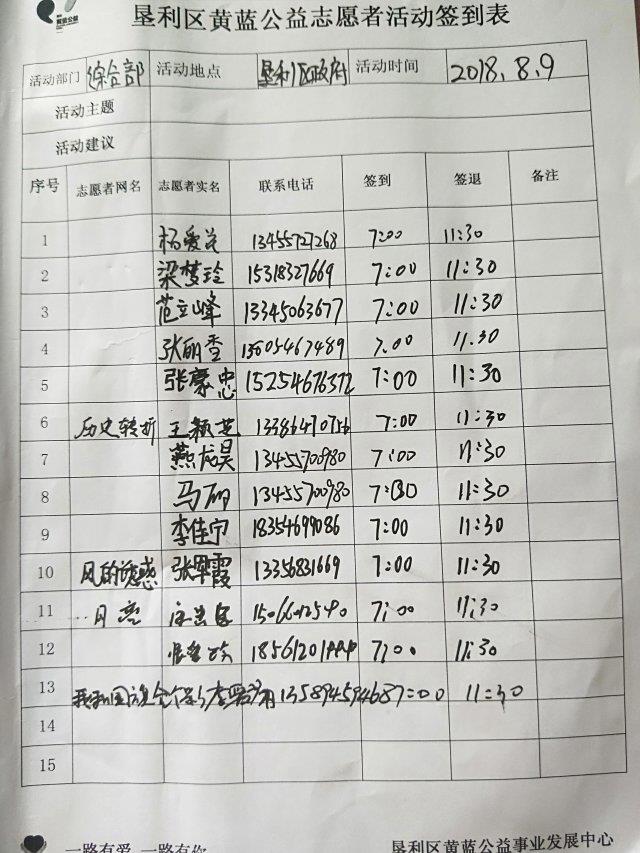 黄蓝公益
垦利区黄蓝公益志愿者活动签到表
活动部门 综合部 活动地点 垦利区政府 活动时间 2018.8.9
活动主题
活动建议
序号 志愿者网名 志愿者实名 联系电话 签到 签退 备注
1 杨爱芝 13455727268 7:00 11:30
2 梁梦玲 15318327669 7:00 11:30
3 范立峰 13345063677 7:00 11:30
4 张丽香 13005467489 7.00 11.30
5 张豪忠 15254676372 7:00 11:30
6 历史转折 王颖芝 13386470756 7:00 11:30
7 燕龙昊 13455700980 7:00 11:30
8 马丽 13455700980 7:00 11:30
9 李佳宁 18354699086 7:00 11:30
10 风的诱惑 张翠霞 13356831669 7:00 11:30
11 月亮 7:00 11:30
12 7:00 11:30
13 13589459468 7:00 11:30
14
15
一路有爱 一路有你
垦利区黄蓝公益事业发展中心